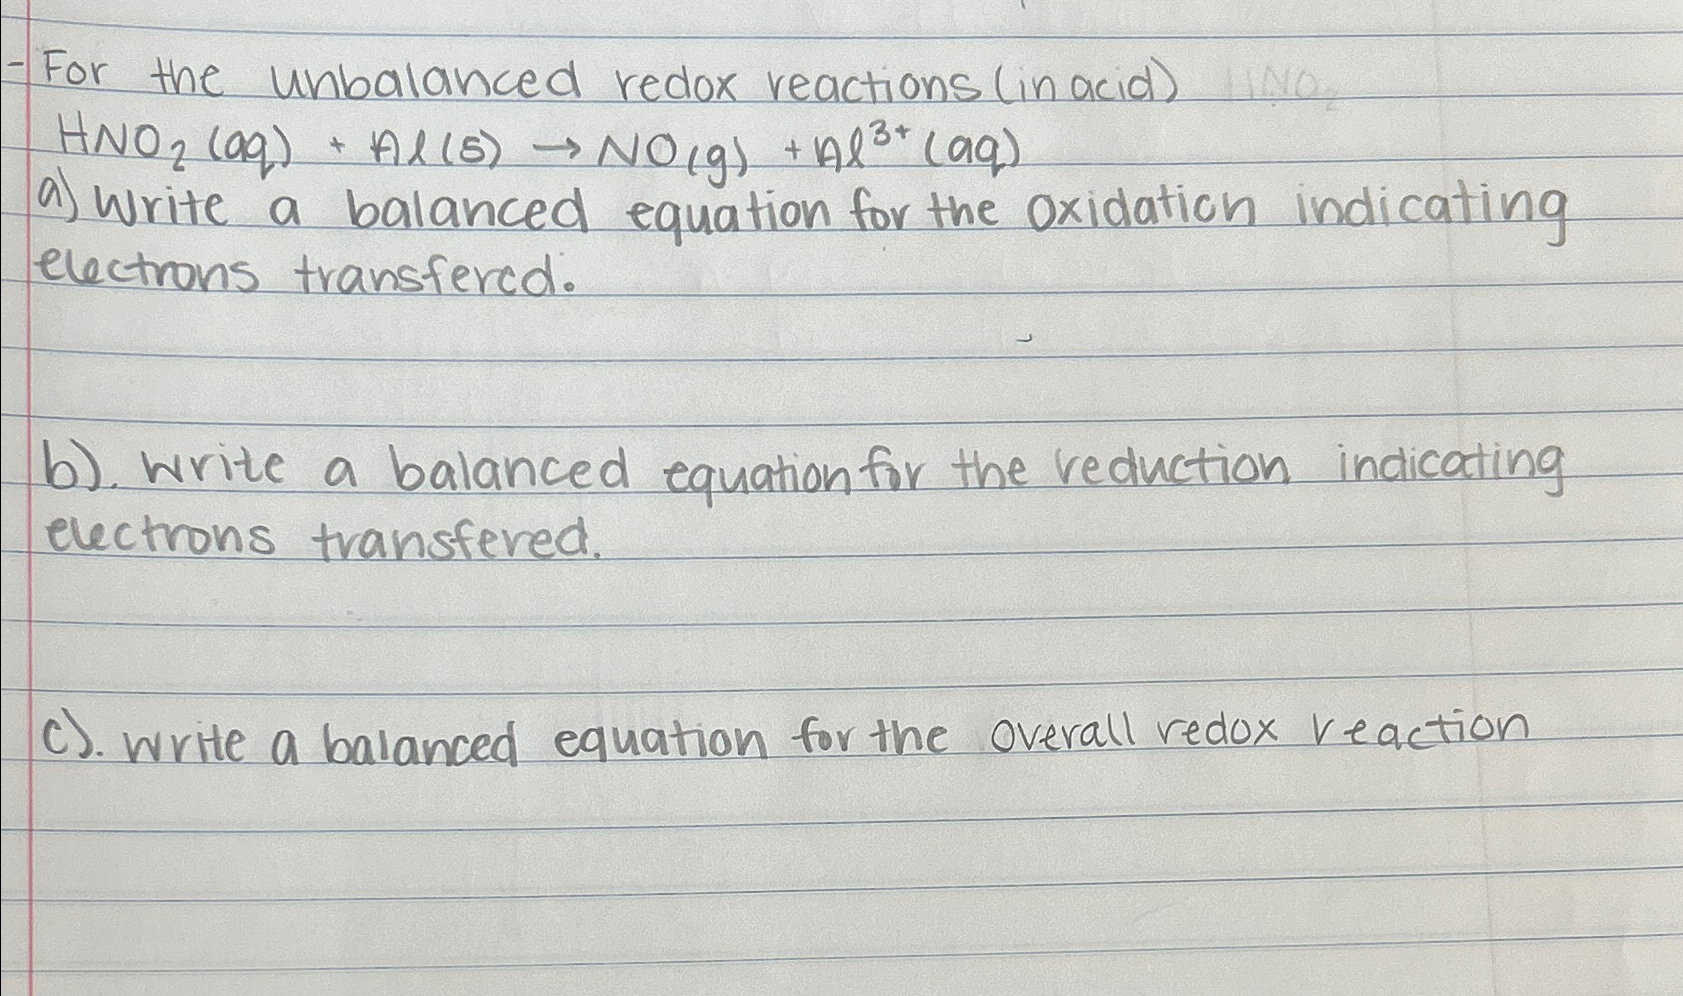 - For the unbalanced redox reactions (in acid) HNO₂
HNO₂ (aq) + Al(s) → NO(g) + Al³⁺ (aq)
a) Write a balanced equation for the oxidation indicating
electrons transfered.
b). Write a balanced equation for the reduction indicating
electrons transfered.
c). Write a balanced equation for the overall redox reaction